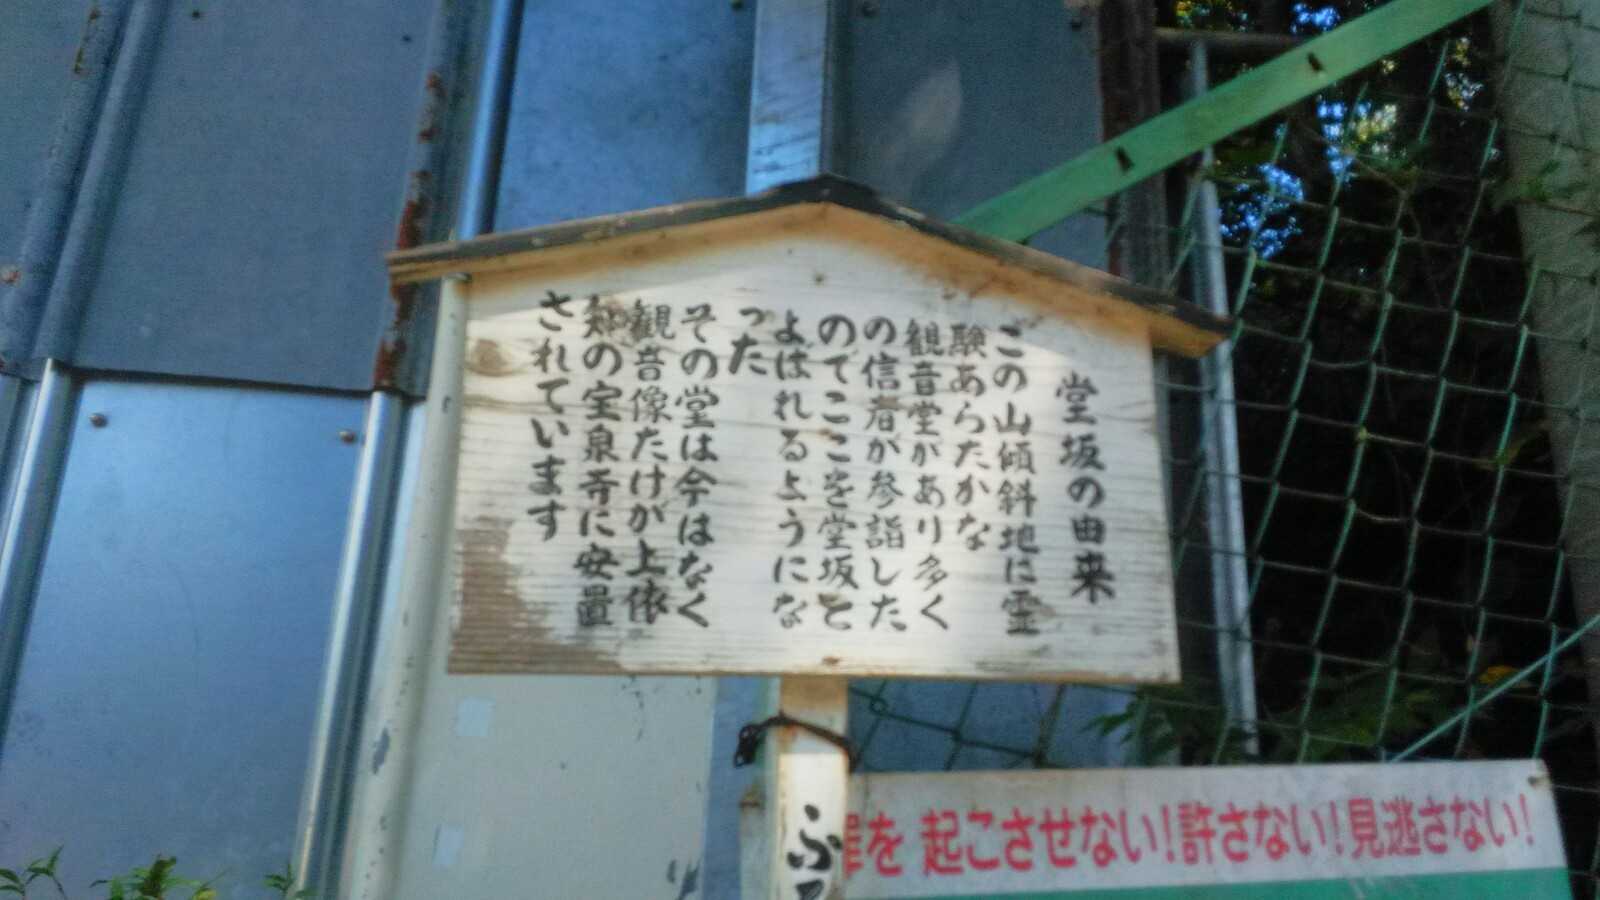 堂坂の由来
この山傾斜地に霊
験あらたかな
観音堂があり多く
の信者が参詣した
のでここを堂坂と
よばれるようにな
った
その堂は今はなく
観音像たけが上依
知の宝泉寺に安置
されています
ふ
を 起こさせない!許さない!見逃さない!